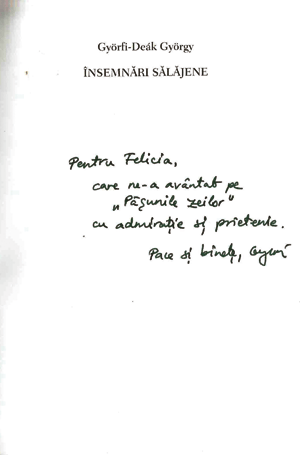 Györfi-Deák György
ÎNSEMNĂRI SĂLĂJENE
Pentru Felicia,
care ne-a avântat pe
„Pășunile zeilor"
cu admirație și prietenie.
Pace și bine, Gyuri